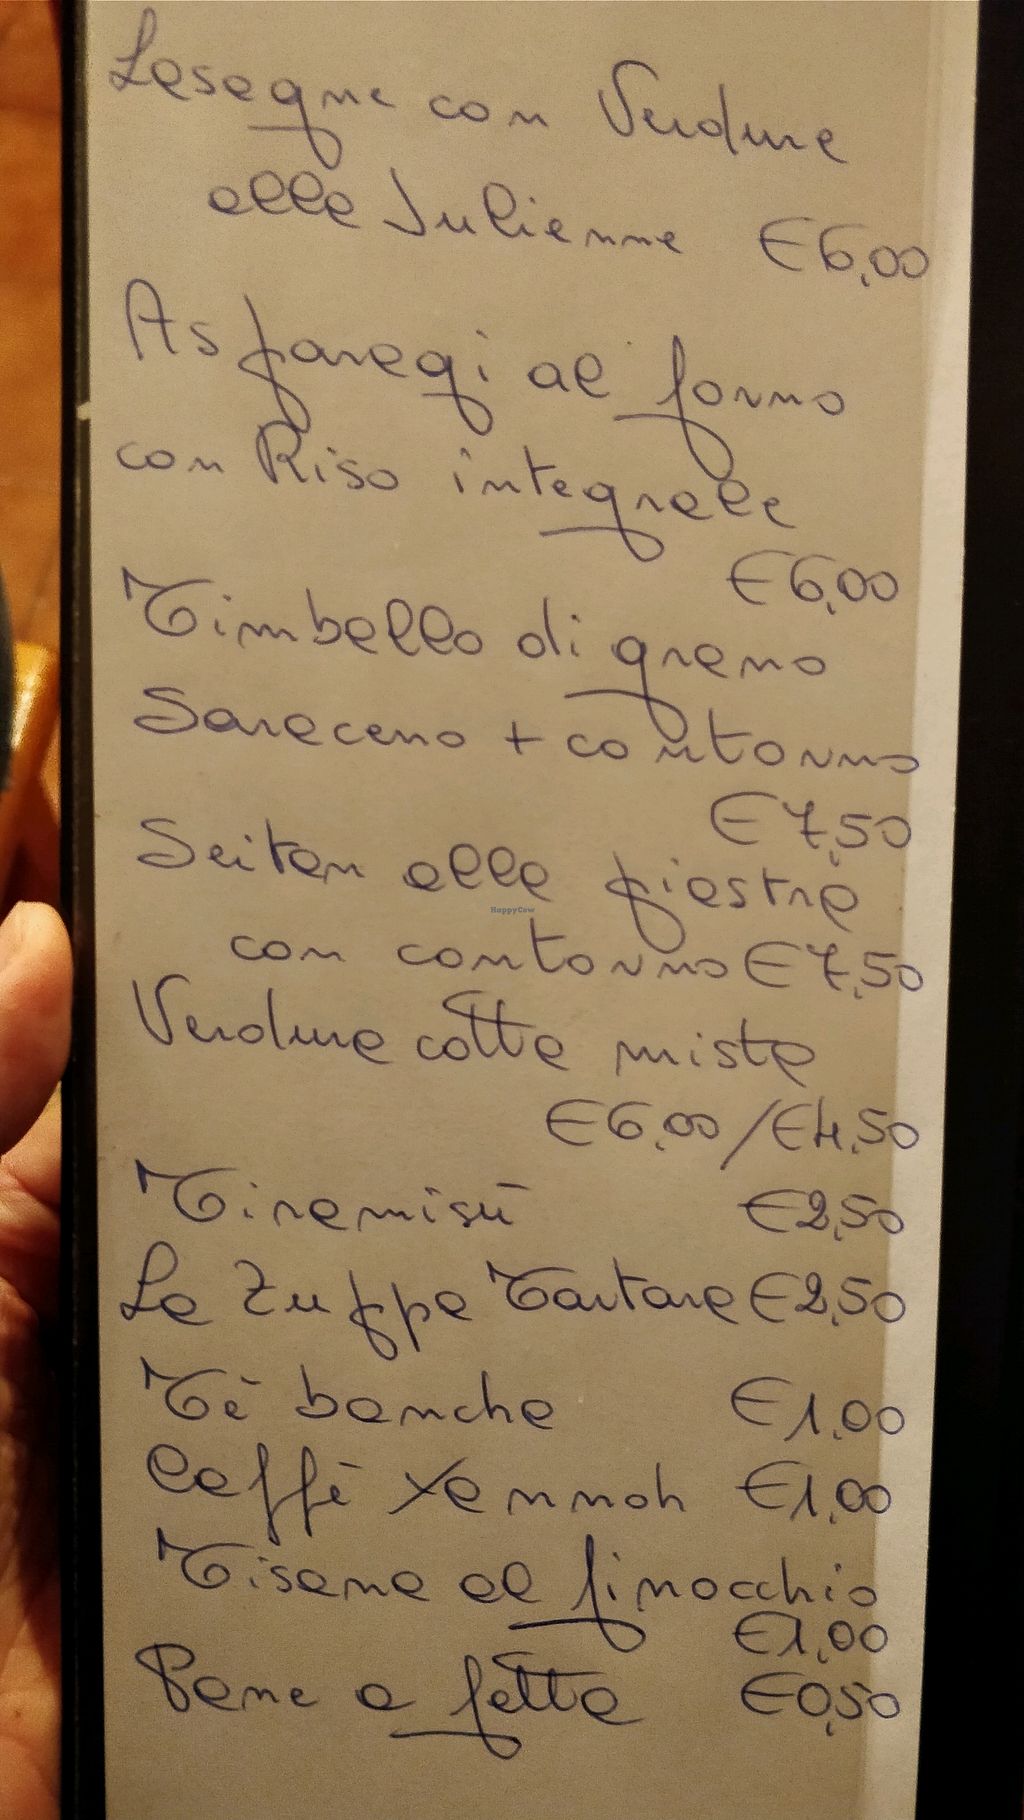 Lasagne con Verdure
alla Julienne €6,00
Asparagi al forno
con Riso integrale
€6,00
Timballo di grano
Saraceno + contorno
€7,50
Seitan alla piastra
con contorno €7,50
Verdure cotte miste
€6,00/€4,50
Tiramisù €2,50
La Zuppa Tartara €2,50
Tè bancha €1,00
Caffè Yannoh €1,00
Tisana al finocchio
€1,00
Pane a fette €0,50
HappyCow